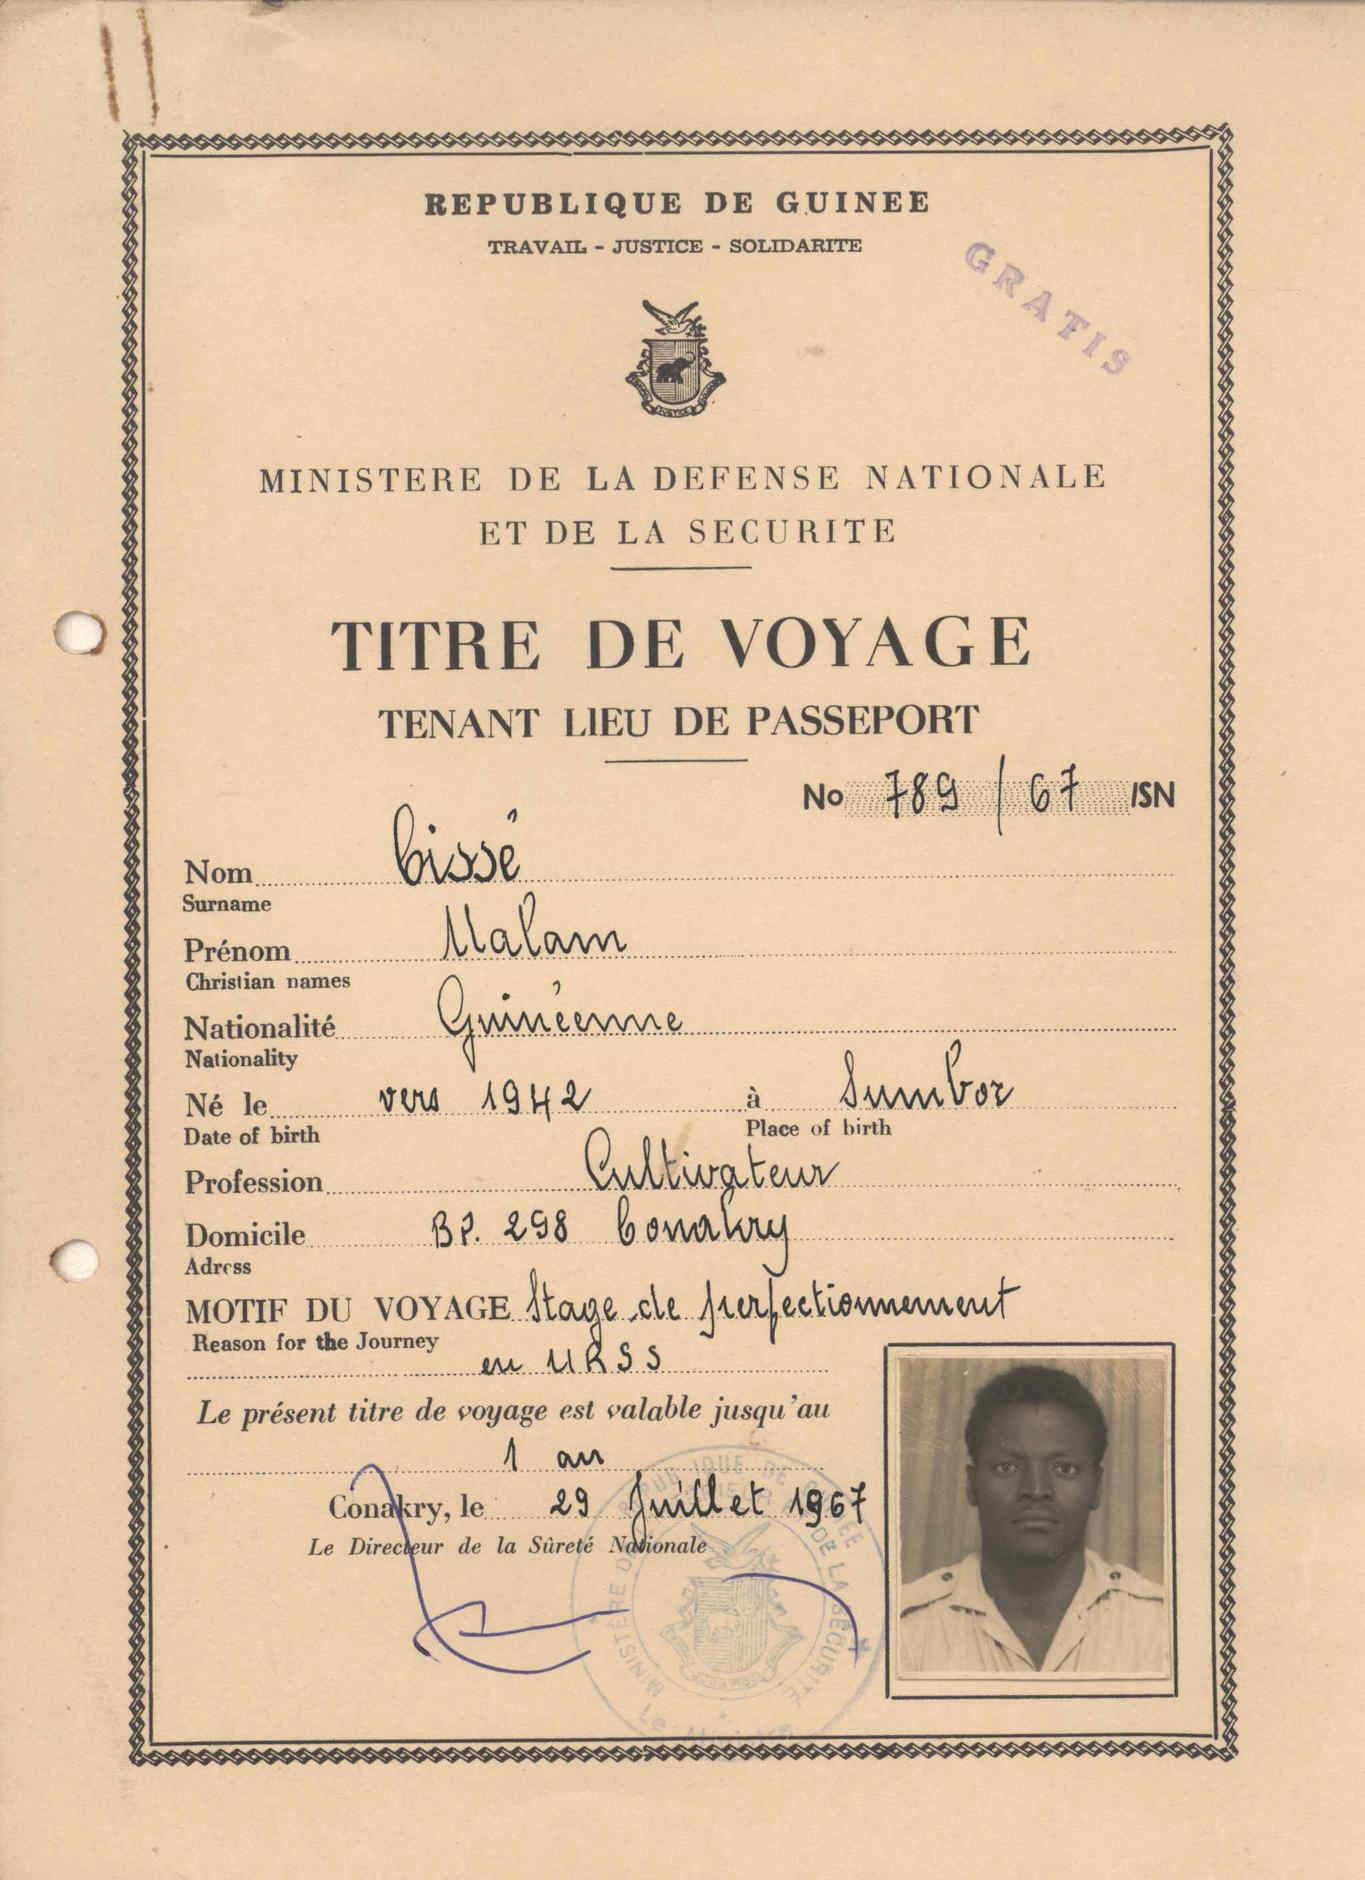 REPUBLIQUE DE GUINEE
TRAVAIL - JUSTICE - SOLIDARITE
GRATIS
MINISTERE DE LA DEFENSE NATIONALE
ET DE LA SECURITE
TITRE DE VOYAGE
TENANT LIEU DE PASSEPORT
No 789 / 67 /SN
Nom Cissé
Surname
Prénom Malam
Christian names
Nationalité Guinéenne
Nationality
Né le vers 1942 à Sumbor
Date of birth Place of birth
Profession Cultivateur
Domicile BP. 298 Conakry
Adress
MOTIF DU VOYAGE Stage de perfectionnement
Reason for the Journey
en URSS
Le présent titre de voyage est valable jusqu'au
1 an
Conakry, le 29 Juillet 1967
Le Directeur de la Sûreté Nationale
MINISTÈRE DE LA SÉCURITÉ